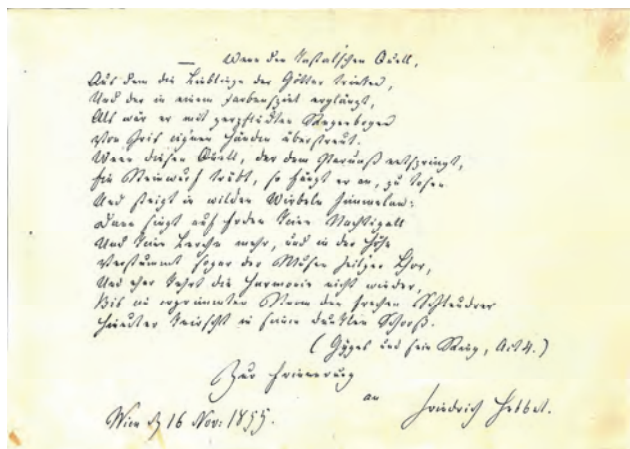 — Wenn den kastal'schen Quell,
Aus dem die Lieblinge der Götter trinken,
Und der in einem Farbenspiel erglänzt,
Als wär er mit zerpflückten Regenbogen
Von Iris eignen Händen überstreut.
Wenn diesen Quell, der dem Parnaß entspringt,
Ein Steinwurf trübt, so fängt er an, zu tosen
Und steigt in wilden Wirbeln himmelan:
Dann singt auf Erden keine Nachtigall
Und keine Lerche mehr, und in der Höhe
Verstummt sogar der Musen heil'ger Chor,
Und eher kehrt die Harmonie nicht wieder,
Bis ein ergrimmter Strom den frechen Schleudrer
Hinunter knirscht in seinen dunklen Schooß.
(Gyges und sein Ring, Act 4.)
Zur Erinnerung
an
Wien d 16 Nov: 1855. Friedrich Hebbel.